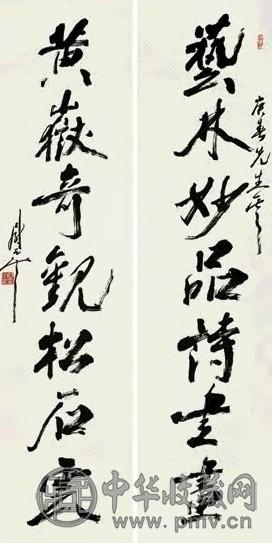 藝林妙品詩書畫
先生
黃嶽奇觀松石雲
中华收藏网
www.pmv.cn